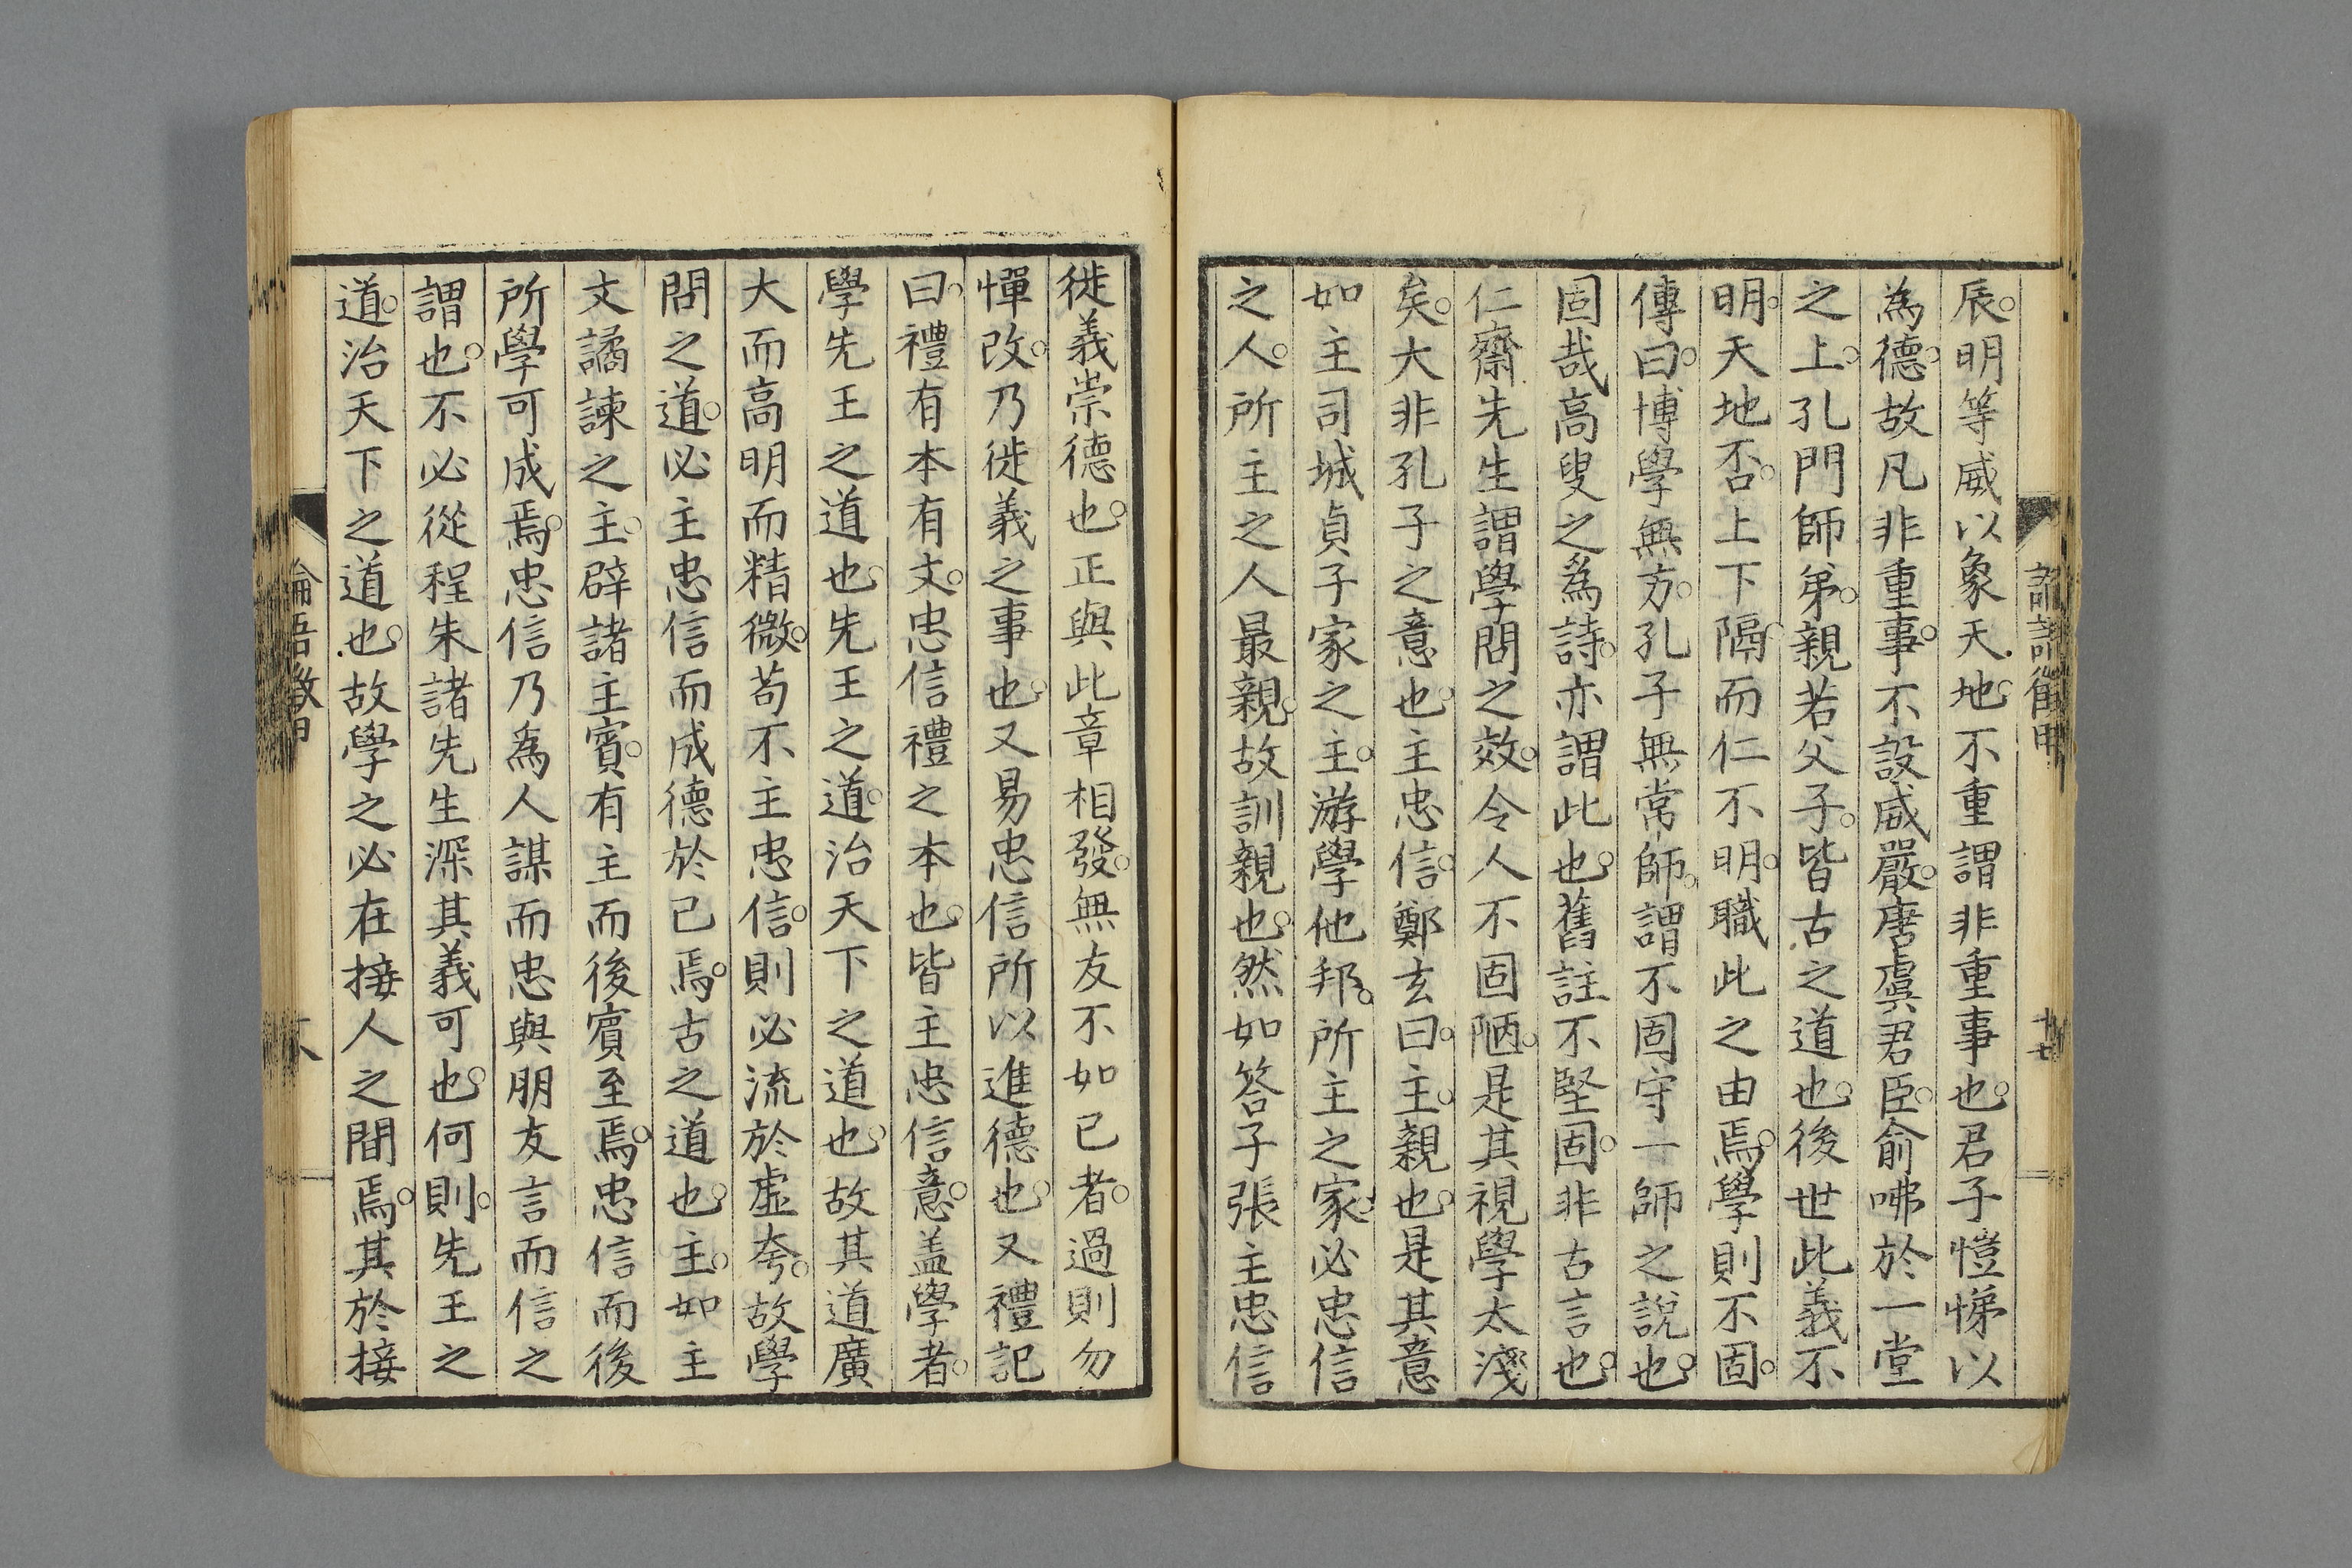 辰。明等威以象天地。不重謂非重事也。君子愷悌以
為德。故凡非重事。不設威嚴。唐虞君臣。俞咈於一堂
之上。孔門師弟。親若父子。皆古之道也。後世此義不
明。天地否。上下隔。而仁不明。職此之由焉。學則不固。
傳曰。博學無方。孔子無常師。謂不固守一師之說也。
固哉高叟之為詩。亦謂此也。舊註不堅固。非古言也。
仁齋先生謂學問之效。令人不固陋。是其視學太淺
矣。大非孔子之意也。主忠信。鄭玄曰。主。親也。是其意
如主司城貞子家之主。游學他邦。所主之家。必忠信
之人。所主之人最親。故訓親也。然如答子張主忠信
徙義崇德也。正與此章相發。無友不如己者。過則勿
憚改。乃徙義之事也。又易忠信所以進德也。又禮記
曰。禮有本有文。忠信禮之本也。皆主忠信意。盖學者。
學先王之道也。先王之道。治天下之道也。故其道廣
大而高明而精微。苟不主忠信。則必流於虛夸。故學
問之道。必主忠信而成德於己焉。古之道也。主。如主
文譎諫之主。辟諸主賓。有主而後賓至焉。忠信而後
所學可成焉。忠信乃為人謀而忠與朋友言而信之
謂也。不必從程朱諸先生深其義可也。何則。先王之
道。治天下之道也。故學之必在接人之間焉。其於接
論語徵甲
十七